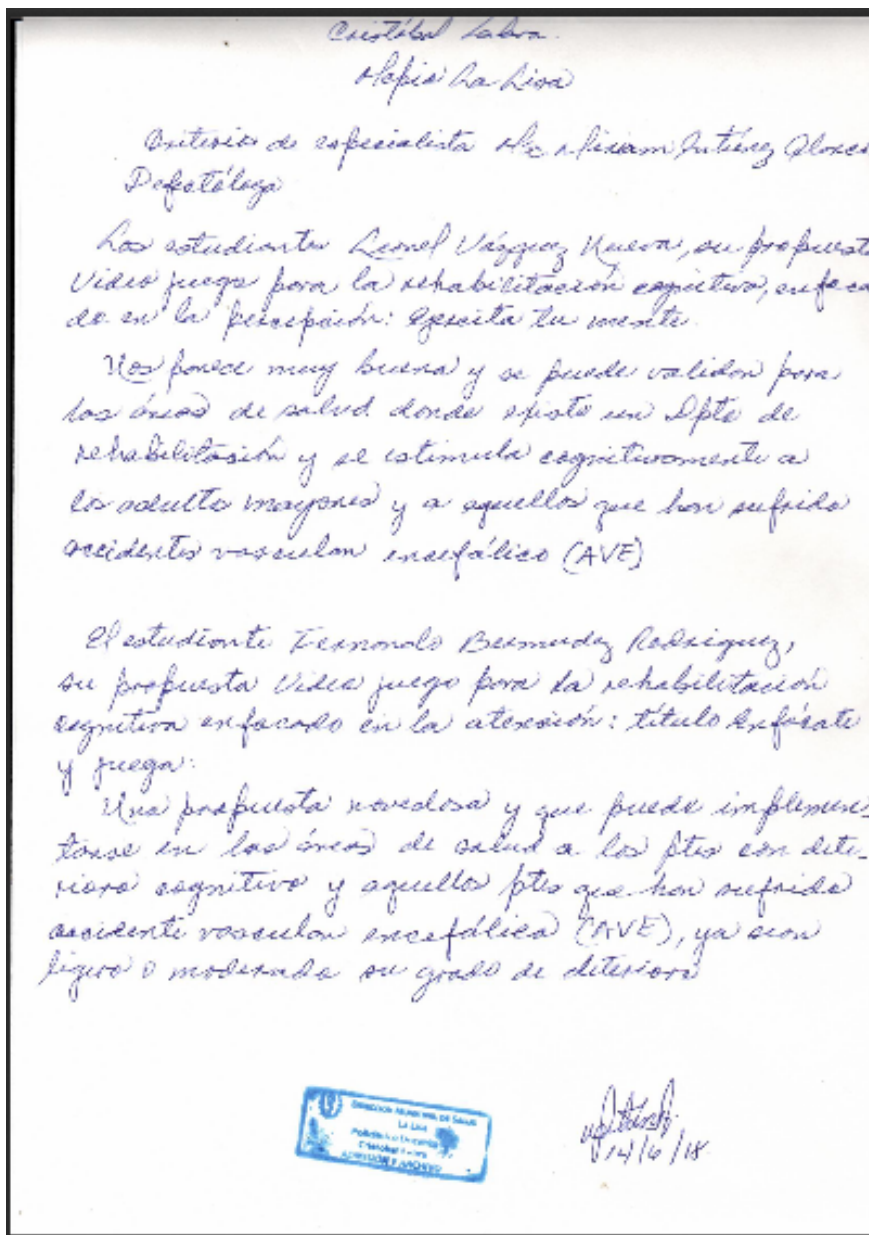 Cristóbal Labra
Mapis La Lisa
Criterio de especialista Msc Miriam Gutiérrez
Defectóloga
Los estudiantes Leonel Vázquez Nueva, su propuesta
Video juego para la rehabilitación cognitiva, enfoca
do en la percepción: Ejercita tu mente.
Nos parece muy buena y se puede validar para
las áreas de salud donde existe un Dpto de
rehabilitación y se estimula cognitivamente a
los adulto mayores y a aquellos que han sufrido
accidentes vascular encefálico (AVE)
El estudiante Fernando Bermudez Rodriguez,
su propuesta Video juego para la rehabilitación
cognitiva enfocado en la atensión: título Enfócate
y juega:
Una propuesta novedosa y que puede implemen_
tarse en las áreas de salud a los ptes con dete_
rioro cognitivo y aquellos ptes que han sufrido
accidente vascular encefálico (AVE), ya sean
ligero o moderado su grado de deterioro
DIRECCION MUNICIPAL DE SALUD
LA LISA
Policlínico Docente
Cristobal Labra
ADMISION Y ARCHIVO
14/6/18